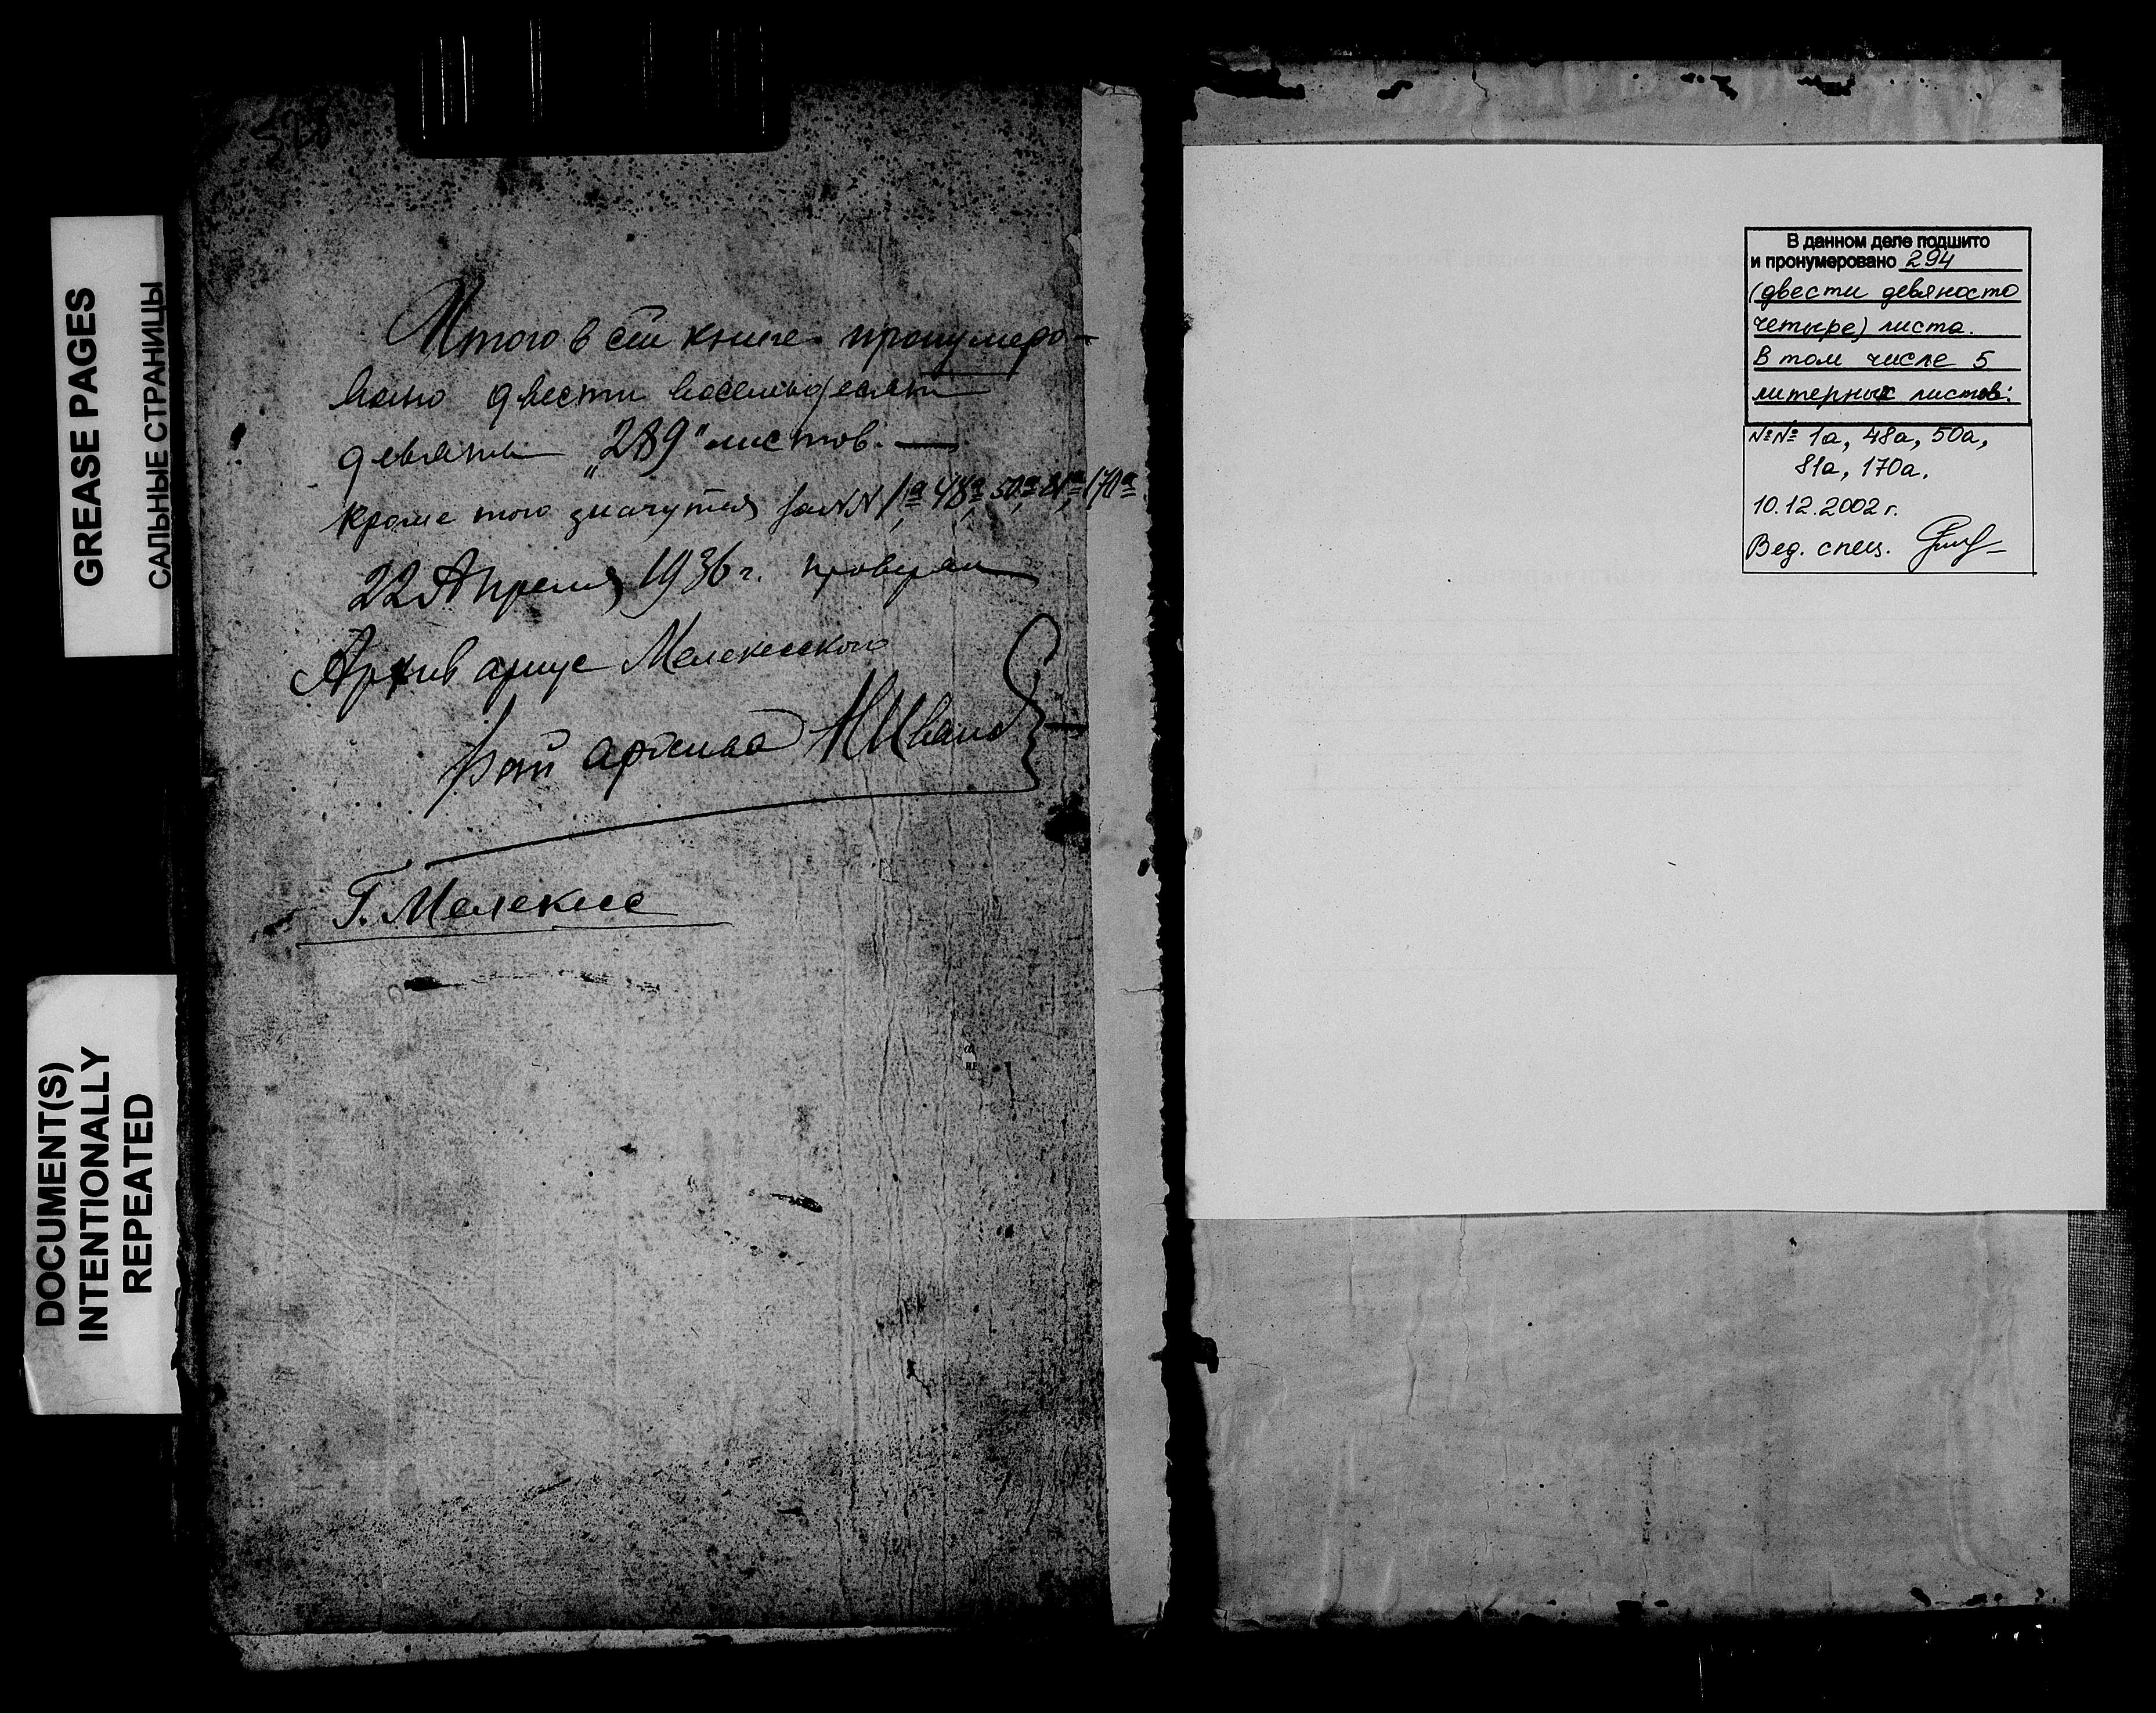 GREASE PAGES
САЛЬНЫЕ СТРАНИЦЫ
DOCUMENT(S)
INTENTIONALLY
REPEATED
Итого в сей книге пронумеро-
вано двести восемьдесят
девять „289" листов. —
кроме того значутся за NN 1а, 48а, 50а, 81а, 170а
22 Апреля 1936 г. проверил
Архивариус Мелекесского
Рай архива НИванов
Г. Мелекесс
В данном деле подшито
и пронумеровано 294
(двести девяносто
четыре) листа.
В том числе 5
литерных листов:
№№ 1а, 48а, 50а,
81а, 170а.
10.12.2002 г.
Вед. спец.